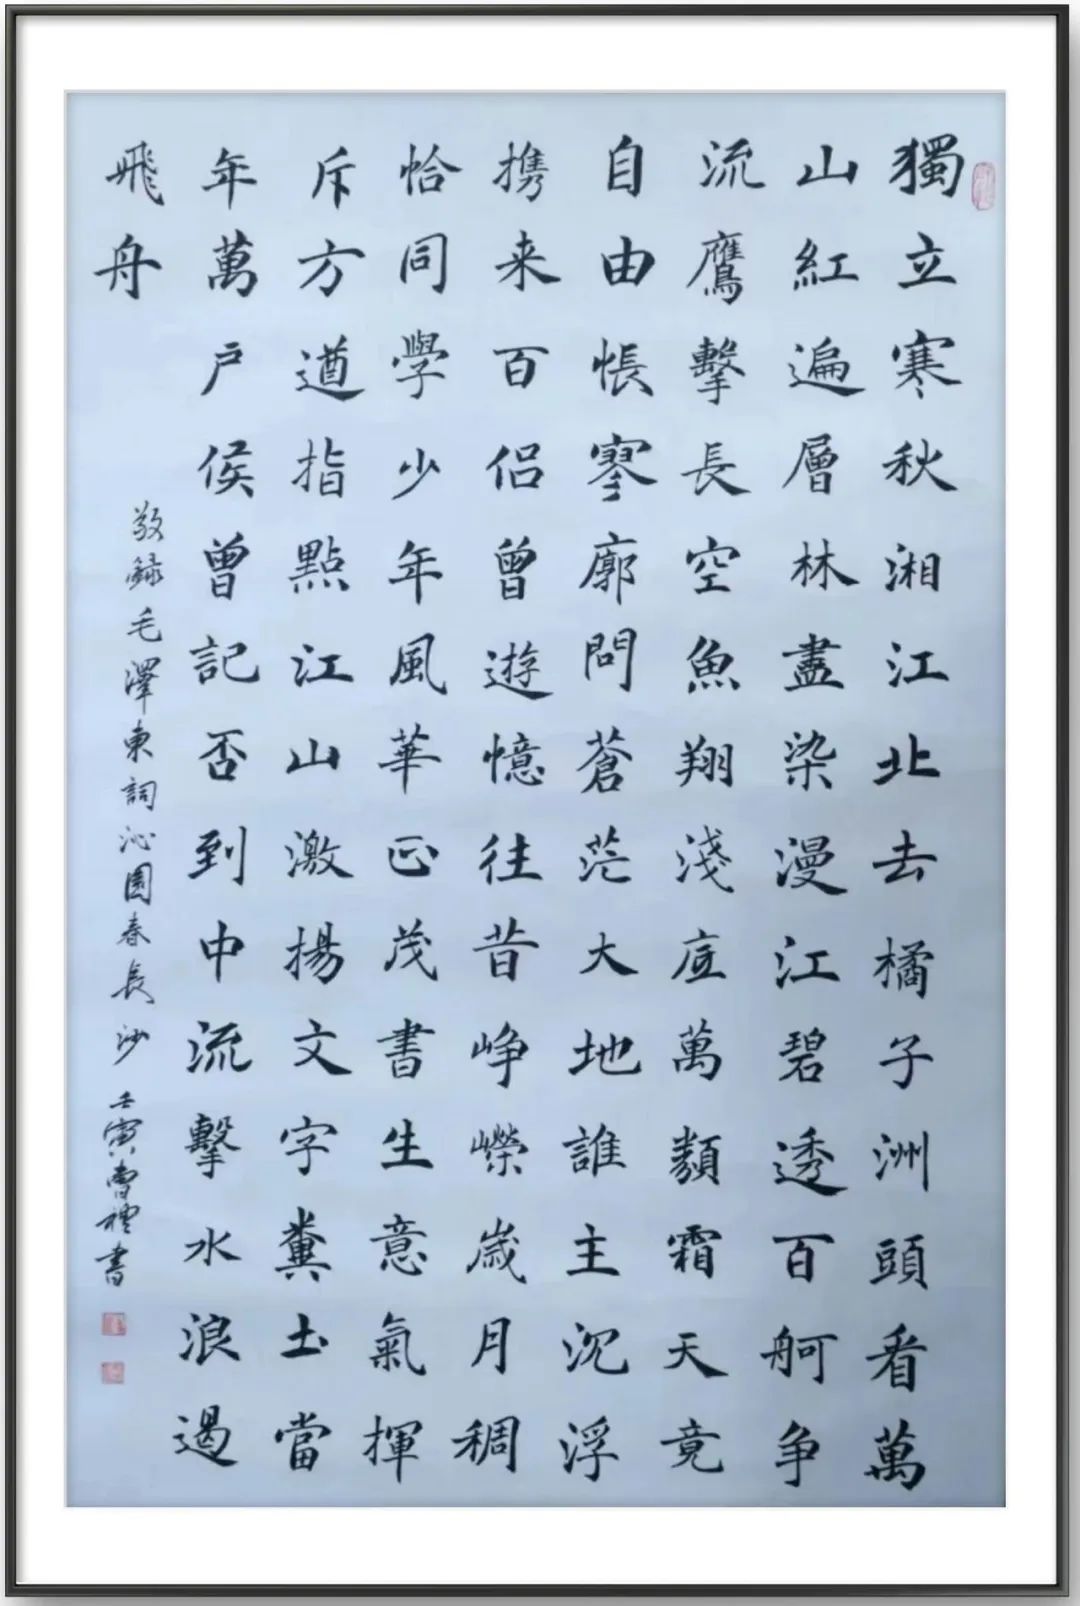 獨立寒秋湘江北去橘子洲頭看萬
山紅遍層林盡染漫江碧透百舸争
流鷹擊長空魚翔淺底萬類霜天竟
自由悵寥廓問蒼茫大地誰主沉浮
携来百侣曾遊憶往昔崢嶸崴月稠
恰同學少年風華正茂書生意氣揮
斥方遒指點江山激揚文字糞土當
年萬户侯曾記否到中流擊水浪遏
飛舟
敬録毛澤東詞沁園春長沙 壬寅曹禮書